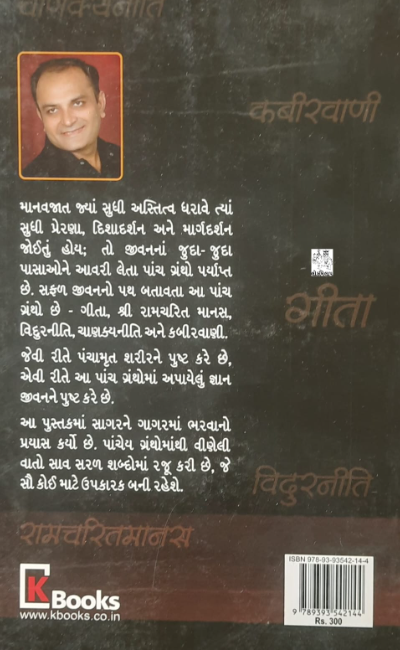 चाणक्यनीति
कबीरवाणी
માનવજાત જ્યાં સુધી અસ્તિત્વ ધરાવે ત્યાં
સુધી પ્રેરણા, દિશાદર્શન અને માર્ગદર્શન
જોઈતું હોય; તો જીવનનાં જુદા-જુદા
પાસાઓને આવરી લેતા પાંચ ગ્રંથો પર્યાપ્ત
છે. સફળ જીવનનો પથ બતાવતા આ પાંચ
ગ્રંથો છે - ગીતા, શ્રી રામચરિત માનસ,
વિદુરનીતિ, ચાણક્યનીતિ અને કબીરવાણી.
गीता
જેવી રીતે પંચામૃત શરીરને પુષ્ટ કરે છે,
એવી રીતે આ પાંચ ગ્રંથોમાં અપાયેલું જ્ઞાન
જીવનને પુષ્ટ કરે છે.
આ પુસ્તકમાં સાગરને ગાગરમાં ભરવાનો
પ્રયાસ કર્યો છે. પાંચેય ગ્રંથોમાંથી વીણેલી
વાતો સાવ સરળ શબ્દોમાં રજૂ કરી છે, જે
સૌ કોઈ માટે ઉપકારક બની રહેશે.
विदुरनीति
रामचरितमानस
K Books
www.kbooks.co.in
ISBN 978-93-93542-14-4
9 789393 542144
Rs. 300